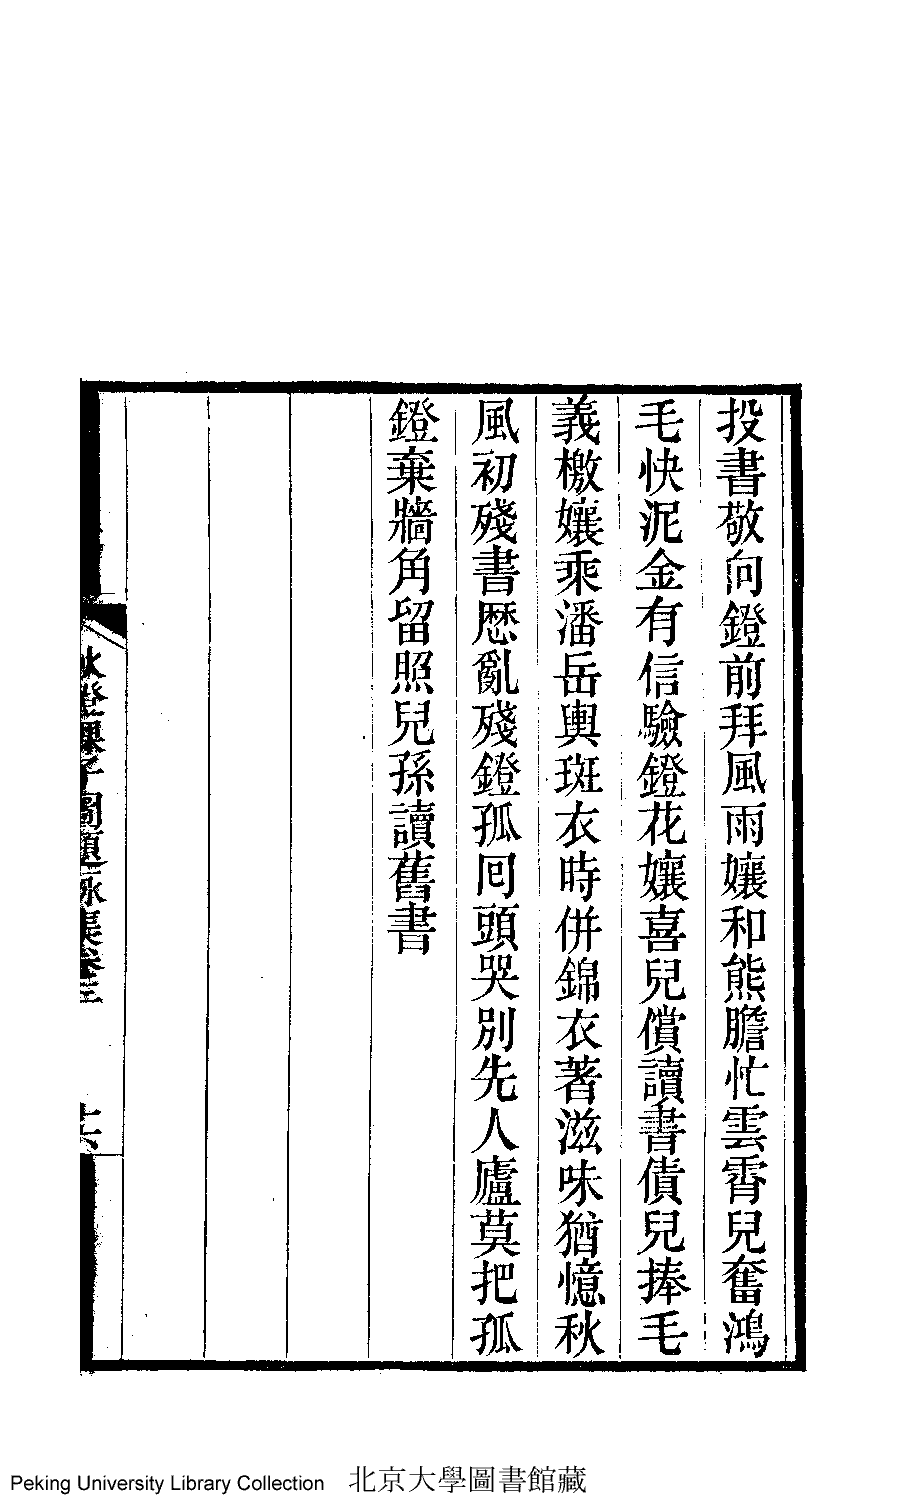 投書敬向鐙前拜風雨孃和熊膽忙雲霄兒奮鴻
毛快泥金有信驗鐙花孃喜兒償讀書債兒捧毛
義檄孃乘潘岳輿斑衣時併錦衣著滋味猶憶秋
風初殘書歷亂殘鐙孤囘頭哭別先人廬莫把孤
鐙棄牆角留照兒孫讀舊書
秋鐙課子圖題詠集卷三
十六
Peking University Library Collection 北京大學圖書館藏